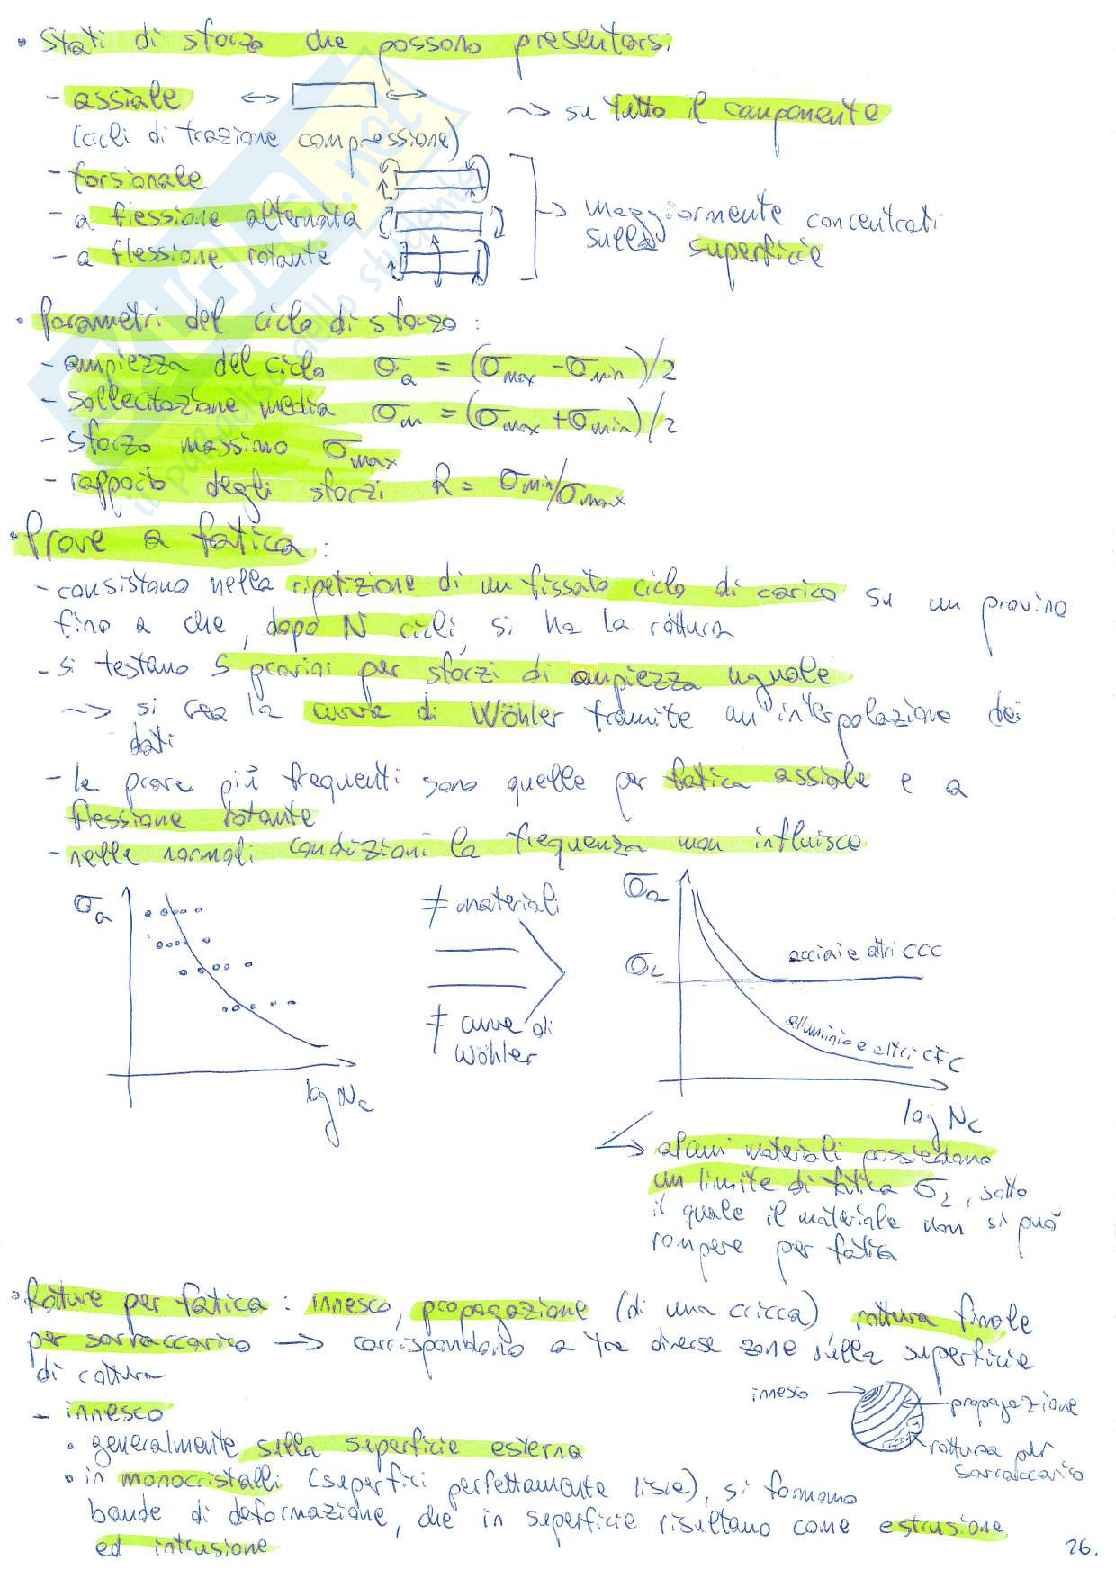 • Stati di sforzo che possono presentarsi
- assiale
~> su tutto il componente
(cicli di trazione compressione)
- torsionale
- a flessione alternata
-> maggiormente concentrati
sulla superficie
- a flessione rotante
• Parametri del ciclo di sforzo :
- ampiezza del ciclo σa = (σmax - σmin)/2
- sollecitazione media σm = (σmax + σmin)/2
- sforzo massimo σmax
- rapporto degli sforzi R = σmin/σmax
• Prove a fatica :
- consistono nella ripetizione di un fissato ciclo di carico su un provino
fino a che, dopo N cicli, si ha la rottura
- si testano 5 provini per sforzi di ampiezza uguale
~> si crea la curva di Wöhler tramite un'interpolazione dei
dati
- le prove più frequenti sono quelle per fatica assiale e a
flessione rotante
- nelle normali condizioni la frequenza non influisce
σa
log Nc
≠ materiali
≠ curve di
Wöhler
σa
σL
acciai e altri CCC
alluminio e altri CFC
log Nc
-> alcuni materiali possiedono
un limite di fatica σL, sotto
il quale il materiale non si può
rompere per fatica
• Rotture per fatica : innesco, propagazione (di una cricca) rottura finale
per sovraccarico -> corrispondono a tre diverse zone sulla superficie
di rottura
innesco
propagazione
rottura per
sovraccarico
- innesco
• generalmente sulla superficie esterna
• in monocristalli (superfici perfettamente lisce), si formano
bande di deformazione, che in superficie risultano come estrusione
ed intrusione
26.